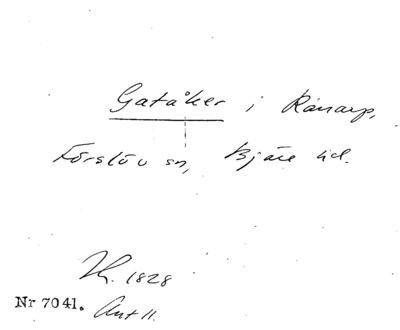 Gatåker i Ranarp,
Förslöv sn, Bjäre hd.
Lh. 1828
Nr 7041. Akt 11.